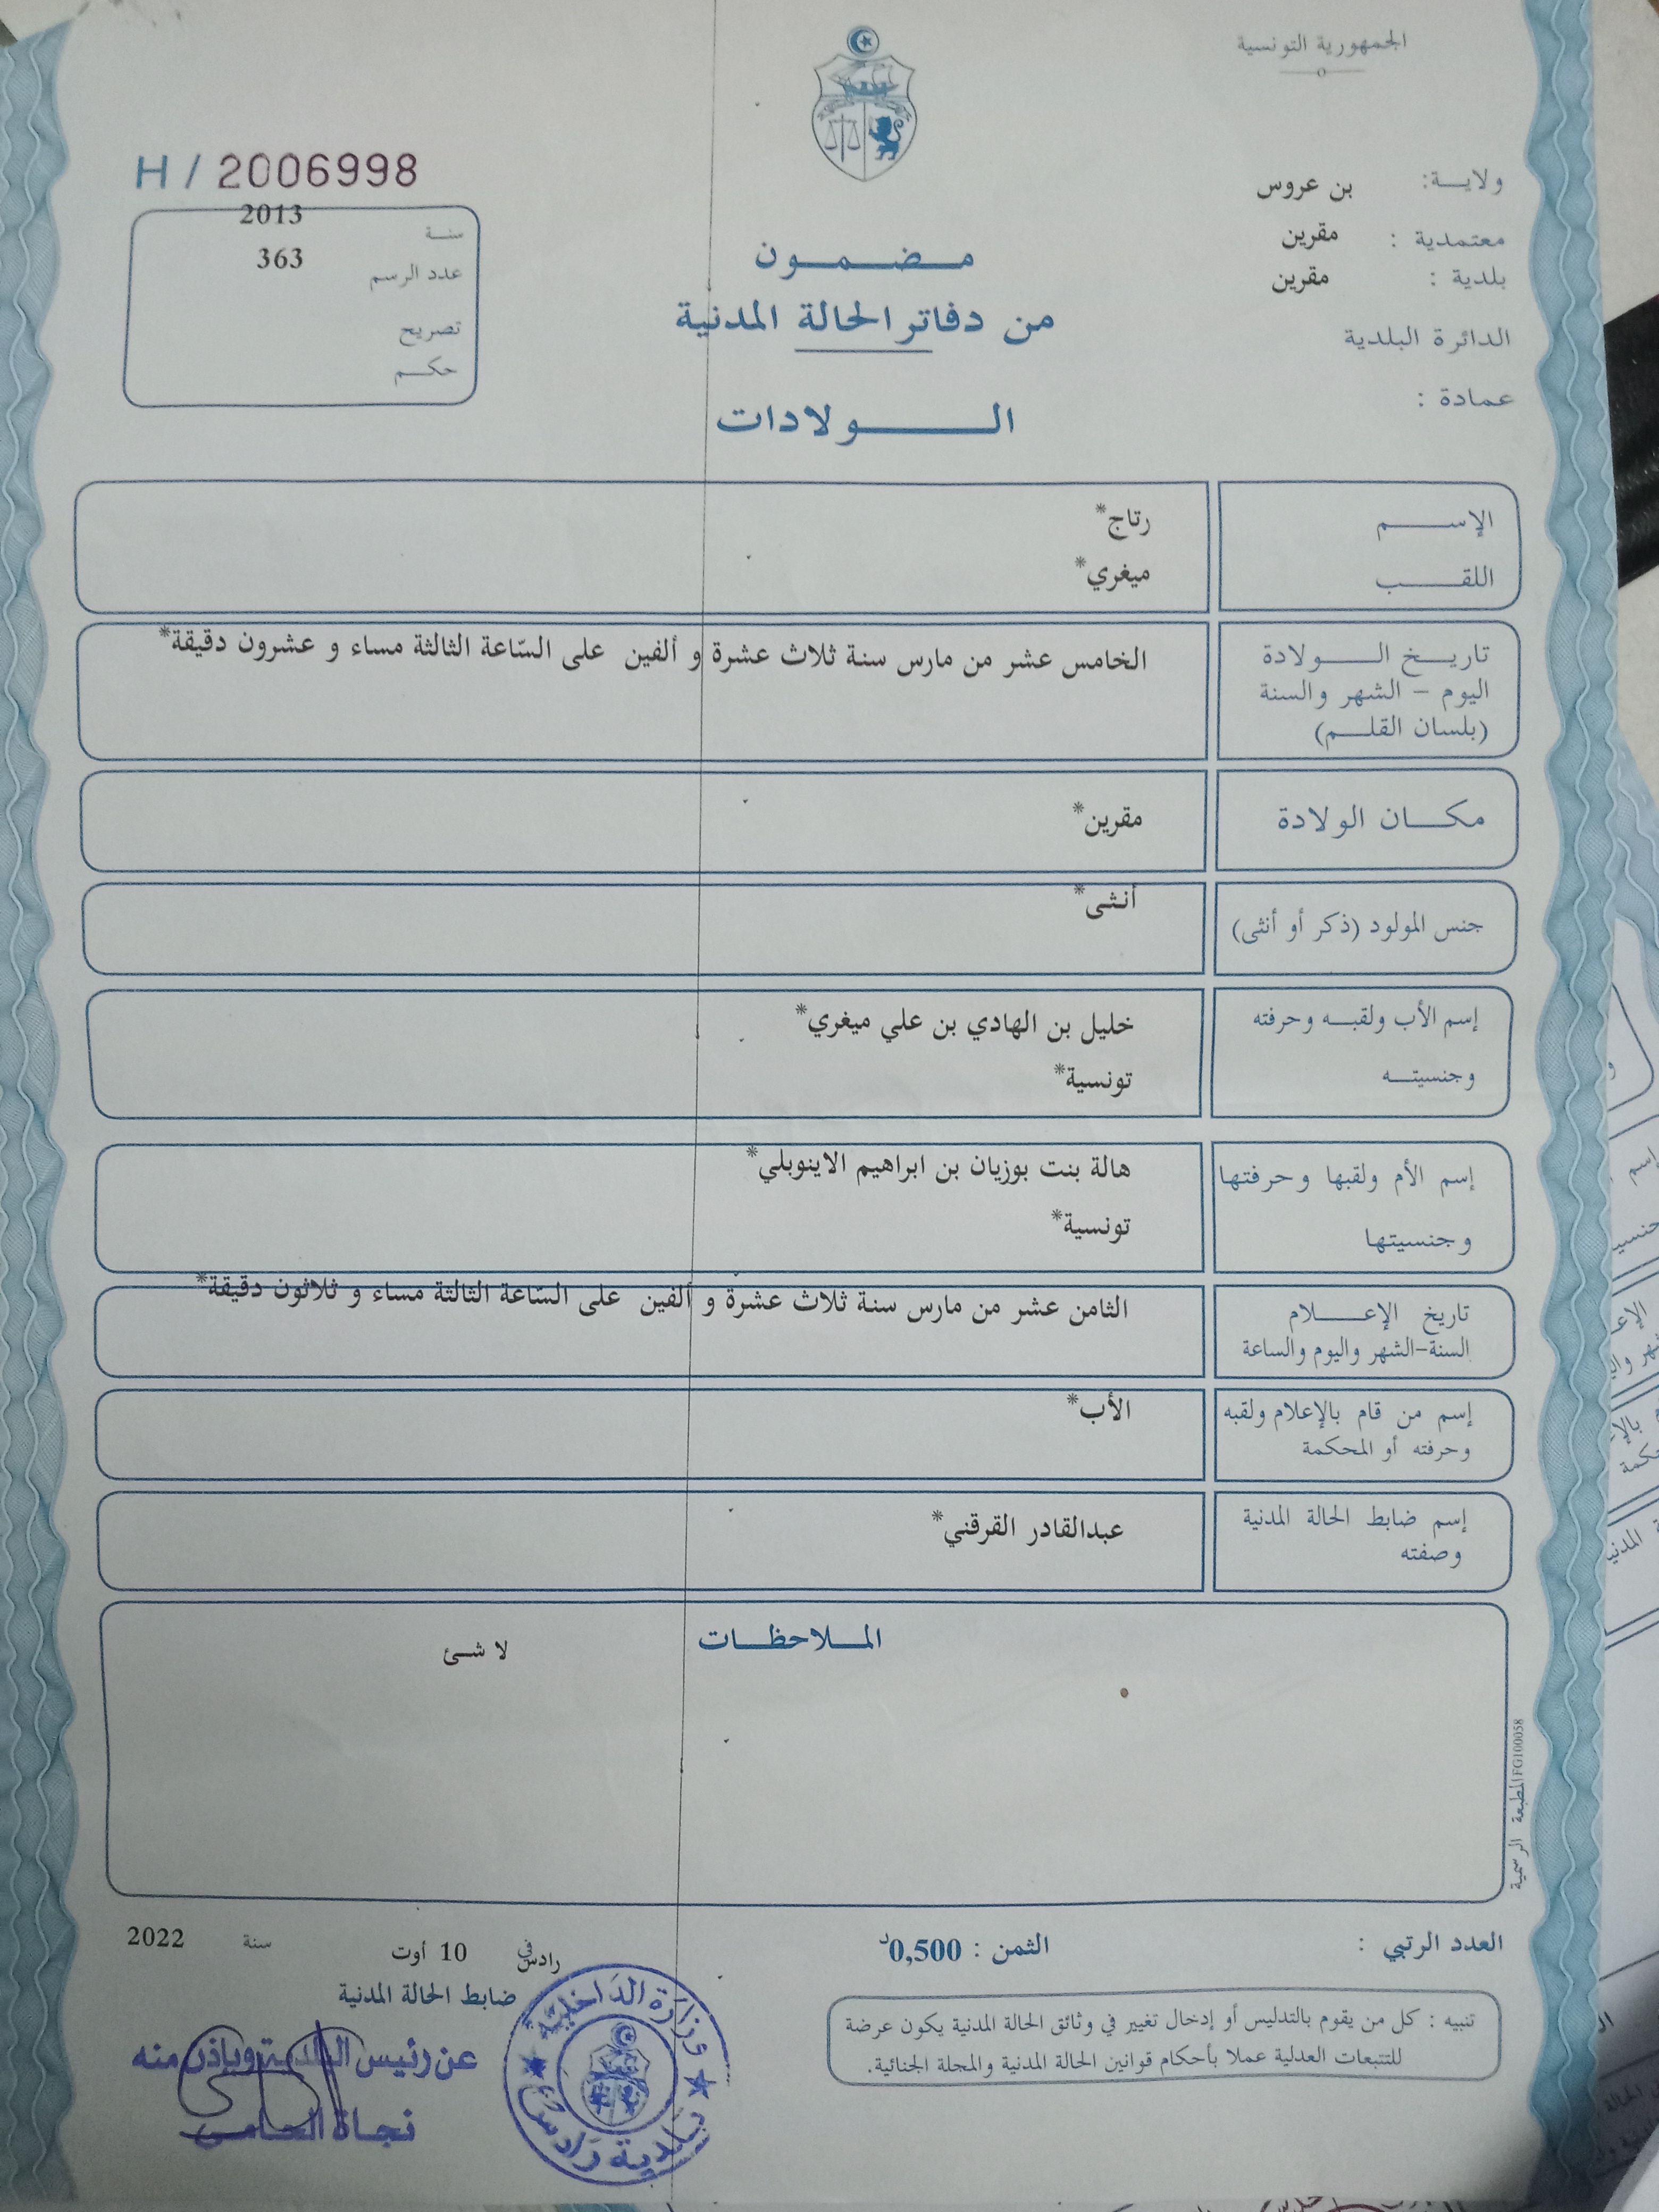 الجمهورية التونسية
H / 2006998
ولايــة: بن عروس
معتمدية : مقرين
بلدية : مقرين
الدائرة البلدية
عمادة :
مـضـمـون
من دفاتر الحالة المدنية
الـــولادات
سنـة 2013
عدد الرسم 363
تصريح
حكـم
الإســـم رتاج*
اللقـــب ميغري*
تاريـخ الــولادة الخامس عشر من مارس سنة ثلاث عشرة و ألفين على السّاعة الثالثة مساء و عشرون دقيقة*
اليوم – الشهر والسنة
(بلسان القلـم)
مكــان الولادة مقرين*
جنس المولود (ذكر أو أنثى) أنثى*
إسم الأب ولقبـه وحرفته خليل بن الهادي بن علي ميغري*
وجنسيتـه تونسية*
إسم الأم ولقبها وحرفتها هالة بنت بوزيان بن ابراهيم الاينوبلي*
وجنسيتها تونسية*
تاريخ الإعــلام الثامن عشر من مارس سنة ثلاث عشرة و ألفين على السّاعة الثالثة مساء و ثلاثون دقيقة*
السنة-الشهر واليوم والساعة
إسم من قام بالإعلام ولقبه الأب*
وحرفته أو المحكمة
إسم ضابط الحالة المدنية عبدالقادر القرقني*
وصفته
المـلاحظـات
لا شئ
المطبعة الرسمية FG100058
العدد الرتبي :
الثمن : 0,500د
رادس في 10 أوت سنة 2022
ضابط الحالة المدنية
عن رئيس البلدية وبإذن منه
وزارة الداخلية
بلدية رادس
تنبيه : كل من يقوم بالتدليس أو إدخال تغيير في وثائق الحالة المدنية يكون عرضة
للتتبعات العدلية عملا بأحكام قوانين الحالة المدنية والمجلة الجنائية.